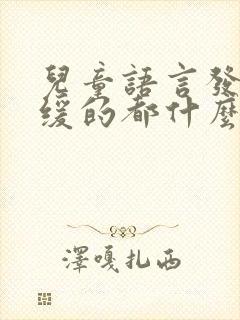 兒童語言發
緩的都什麼
澤嘎扎西